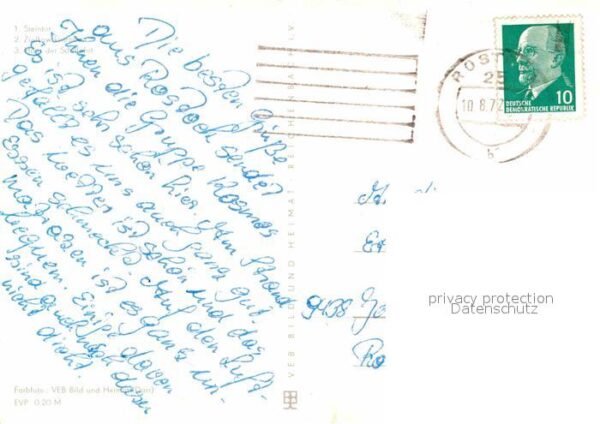 1. Steintor
Die besten Grüße
aus Rostock sendet
Ihnen die Gruppe Kosmos
Es ist sehr schön hier. Am Strand
gefällt es uns auch ganz gut.
Das Wetter ist schön und das
Essen schmeckt. Auf den Luft-
matrazen ist es ganz un-
bequem. Einige davon
sind
nicht dicht.
Farbfoto: VEB Bild und Heimat
EVP 0.20 M
VEB BILD UND HEIMAT REICHENBACH I. V.
ROSTOCK
25
10.8.72
b
10
DEUTSCHE
DEMOKRATISCHE REPUBLIK
9438
privacy protection
Datenschutz